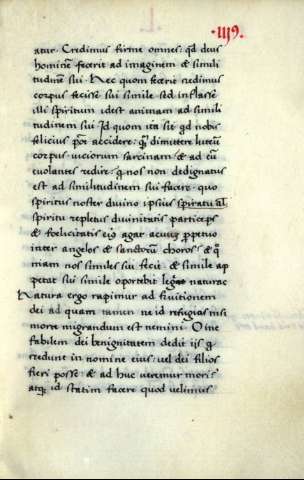 119.
atur. Credimus firme omnes: qđ deus
hominē fecerit ad imaginem & simili
tudinem sui. Nec quom fecerit credimus
corpus fecisse sui simile sed inflasse
illi spiritum idest animam ad simili
tudinem sui. Id quom ita sit qd nobis
felicius pōt accidere: dimittere luteū
corpus viciorum sarcinam & ad eū
evolantes redire: qui nos non dedignatus
est ad similitudinem sui facere. quo
spiritus noster divino ipsius spiratu
spiritu repletus divinitatis particeps
& foelicitatis eiꝰ agat aevum ꝑpetuo
inter angelos & sanctorū choros: & qm̄
niam nos similes sui fecit. & simile ap
petat sui simile oportebit naturae
Natura ergo rapimur ad fruitionem
dei ad quam tamen ne id refugias nisi
morte migrandum est nemini. O ine
fabilem dei benignitatem dedit ijs q̄
credunt in nomine eius: vel dei filios
fieri posse: & ad huc veremur mori:
atqꝫ id statim facere quod velimus